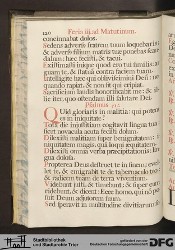 120 Feria iii. ad Matutinum.
concinnabat dolos.
Sedens adversus fratrem tuum loquebaris:
& adversus filium matris tuæ ponebas scan
dalum: hæc fecisti, & tacui.
Existimasti inique quod ero tui similis: ar
guam te, & statuam contra faciem tuam.
Intelligite hæc qui obliviscimini Deum: ne
quando rapiat, & non sit qui eripiat.
Sacrificium laudis honorificabit me: & il
lic iter, quo ostendam illi salutare Dei.
Psalmus 51.
Quid gloriaris in malitia: qui potens
es in iniquitate?
Tota die injustitiam cogitavit lingua tua:
sicut novacula acuta fecisti dolum.
Dilexisti malitiam super benignitatem:
iniquitatem magis, quam loqui æquitatem.
Dilexisti omnia verba præcipitationis: lin
gua dolosa.
Propterea Deus destruet te in finem: evel
let te, & emigrabit te de tabernaculo tuo:
& radicem tuam de terra viventium.
Videbunt justi, & timebunt, & super eum
ridebunt, & dicent: Ecce homo, qui non po
suit Deum adjutorem suum.
Sed speravit in multitudine divitiarum su
Stadtbibliothek
und Stadtarchiv Trier
gefördert von der
Deutschen Forschungsgemeinschaft
DFG